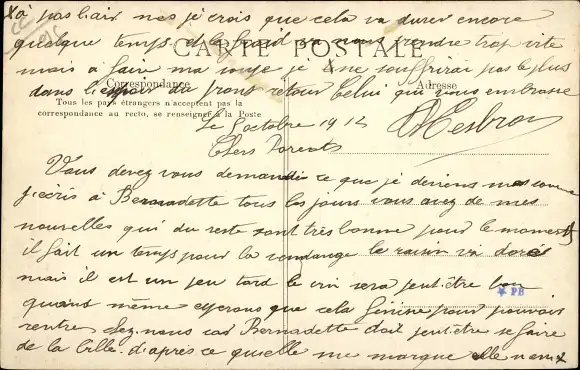 à pas l'air mes je crois que cela va durer encore
quelque temps et le froid va nous prendre trop vite
CARTE POSTALE
mais a faire ma je ne souffrirai pas le plus
Correspondance
Adresse
dans l'espoir du prons retour Celui qui vous embrasse
Tous les pays étrangers n'acceptent pas la
correspondance au recto, se renseigner à la Poste
Le 5 octobre 191
Chers Parents
Vous devez vous demander ce que je deviens mes comme
j'écris à Bernadette tous les jours vous avez de mes
nouvelles qui du reste sont très bonne pour le moment
il fait un temps pour la vendange le raisin va dorée
mais il est un peu tard le vin sera peut être bon
PB
quand même esperons que cela finira pour pouvoir
rentre chez nous car Bernadette doit peut être se faire
de la bille d'après ce qu'elle me marque elle